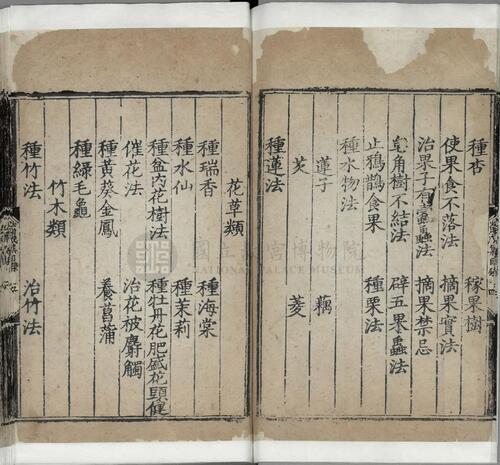 種杏 稼果樹
使果食不落法 摘果實法
治果子有蠹蟲法 摘果禁忌
皂角樹不結法 辟五果蟲法
止鴉鵲食果 種栗法
種水物法
蓮子 藕
芡 菱
種蓮法
花草類
種瑞香 種海棠
種水仙 種茉莉
種盆內花樹法 種牡丹花肥盛花顆健
催花法 治花被麝觸
種黃葵金鳳 養菖蒲
種綠毛龜
竹木類
種竹法 治竹法
國立故宮博物院
NATIONAL PALACE MUSEUM